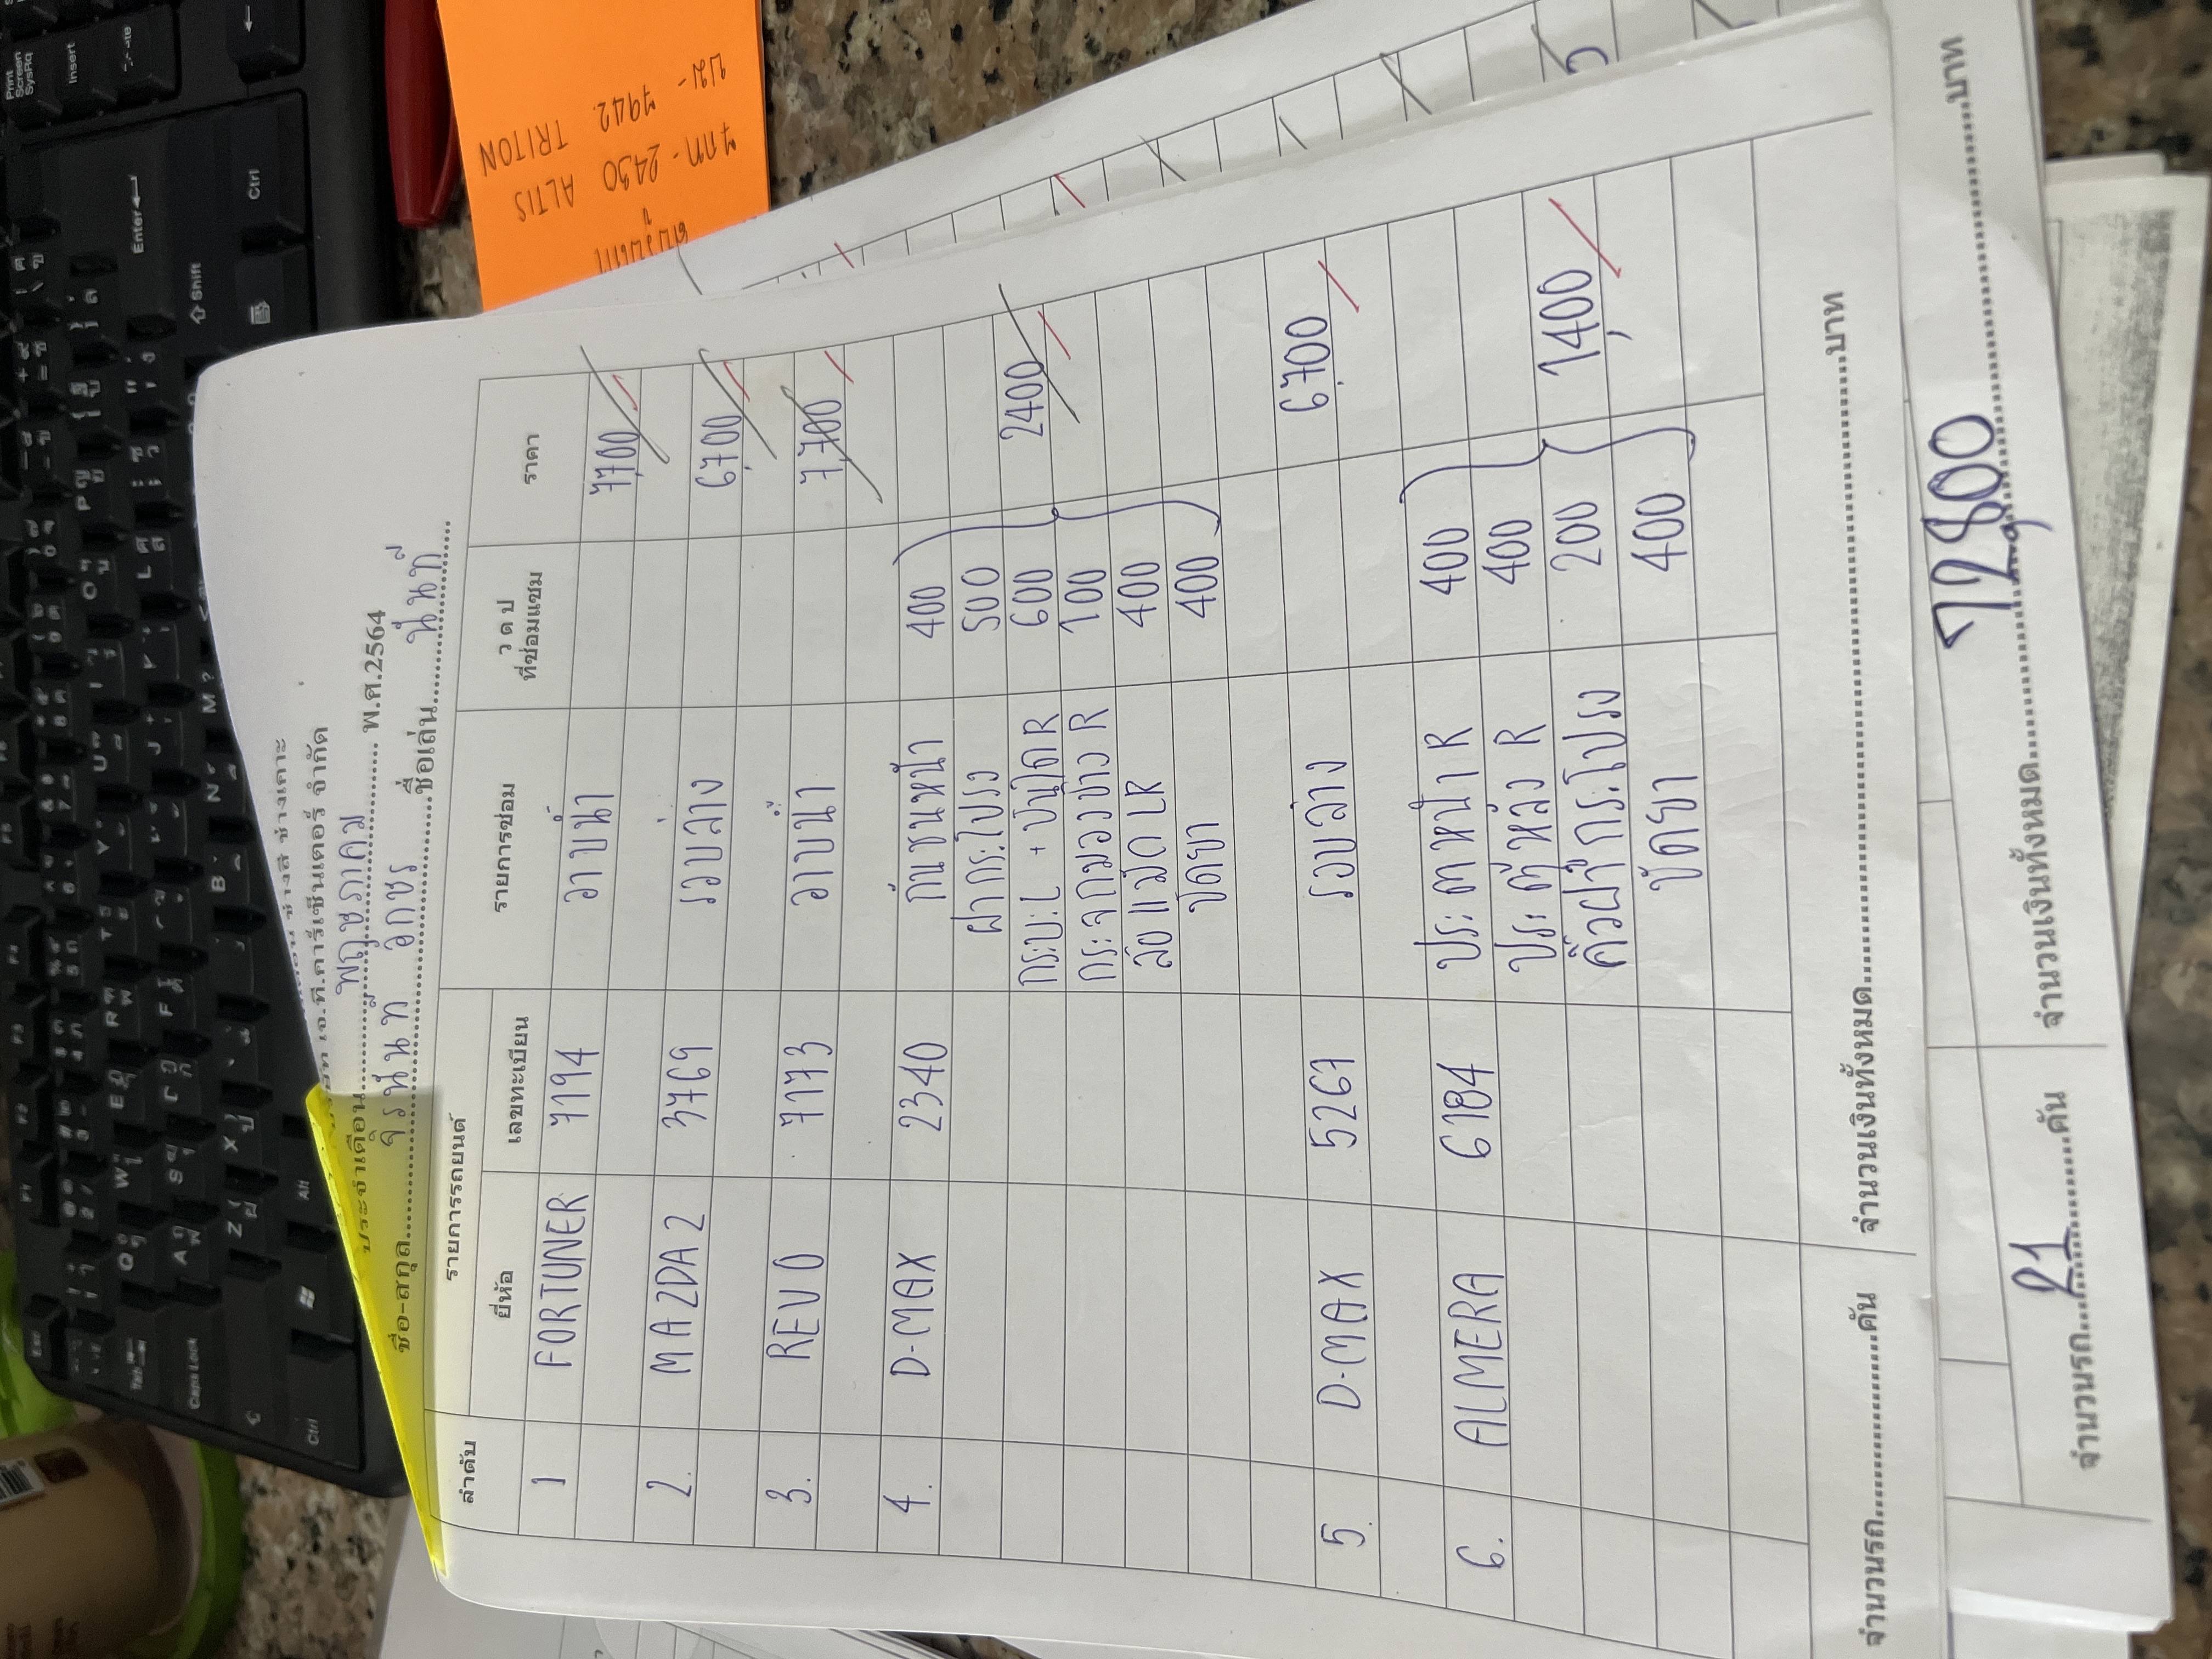 ช่างสี ช่างเคาะ
เอ.ที.คาร์เซ็นเตอร์ จำกัด
ประจำเดือน พฤษภาคม พ.ศ.2564
ชื่อ-สกุล จิรนันท อกษร ชื่อเล่น นันท์
ลำดับ รายการรถยนต์ รายการซ่อม ว ด ป ที่ซ่อมแซม ราคา
ยี่ห้อ เลขทะเบียน
1 FORTUNER 7194 อาบน้ำ 7,700
2. MAZDA 2 3769 รอบล่าง 6,700
3. REVO 7173 อาบน้ำ 7,700
4. D-MAX 2340 กันชนหน้า 400
ฝากระโปรง 500
กระบะL + บันไดR 600 2400
กระจกมองข้าง R 100
ล้อแม็ก LR 400
ขัดยา 400
5. D-MAX 5267 รอบล่าง 6,700
6. ALMERA 6184 ประตูหน้า R 400
ประตูหลัง R 400
คิ้วฝากระโปรง 200 1,400
ขัดยา 400
จำนวนรถ คัน จำนวนเงินทั้งหมด บาท
จำนวนรถ 21 คัน จำนวนเงินทั้งหมด 72,800 บาท
7กก - 2430 ALTIS
บม - 7942. TRITON
Print Screen SysRq
Insert
Enter
Shift
Ctrl
Alt
Caps Lock
Tab